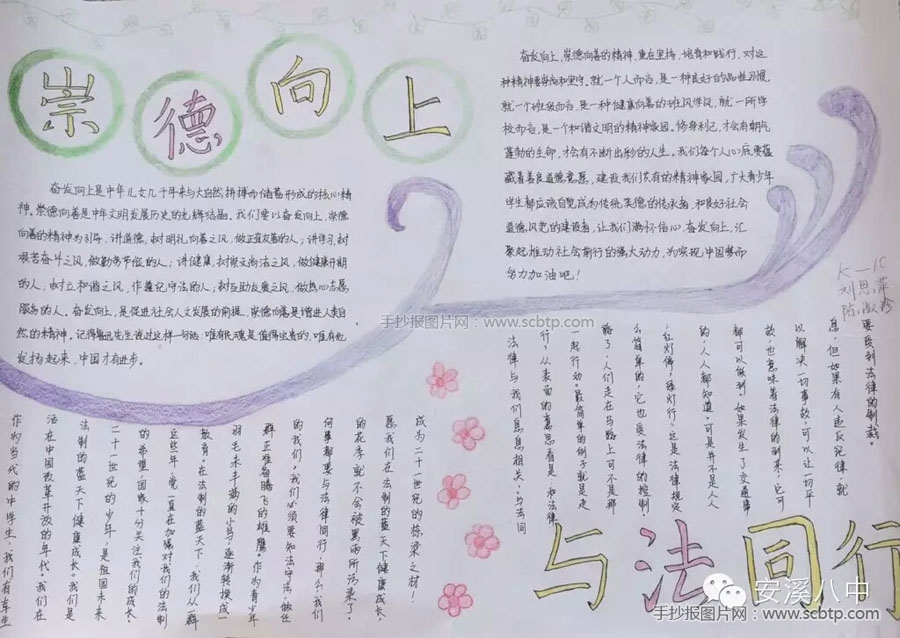 崇德向上
奋发向上是中华儿女几千年来与大自然拼搏而储蓄形成的核心精
神。崇德向善是中华文明发展历史的光辉结晶。我们要以奋发向上、崇德
向善的精神为引导,讲道德,树明礼向善之风,做正直友善的人;讲学习,树
艰苦奋斗之风,做勤劳节俭的人;讲健康,树
的人;树立和谐之风,作遵纪守法的人;树互助友爱之风,做热心志愿
服务的人。奋发向上,是促进社会人文发展的前提,崇德向善是增进人类自
然的精神。记得鲁迅先生说过这样一句话:唯有民魂是值得宝贵的,唯有他
发扬起来,中国才有进步。
奋发向上,崇德向善的精神,重在坚持、培育和践行,对这
种精神要崇尚和坚守。就一个人而言,是一种良好的品性习惯。
就一个班级而言,是一种健康向善的班风学风,就一所学
校而言,是一个和谐文明的精神家园。修身利己,才会有朝气
蓬勃的生命,才会有不断出彩的人生。我们每个人心底要蕴
藏着善良道德意愿,建设我们共有的精神家园,广大青少年
学生都应该自觉成为传统美德的传承者,和良好社会
道德风范的建设者,让我们满怀信心,奋发向上,汇
聚起推动社会前行的强大动力,为实现中国梦而
努力加油吧!
K一10
刘思萍
手抄报图片网:www.scbtp.com
法律与我们息息相关,与法同
行,从表面的意思看是:和法律
一起行动。最简单的例子就是走
路了,人们走在马路上可不是那
么简单的,它也是法律的控制
红灯停,绿灯行。这是法律规定
的,人人都知道,可是并不是人人
都可以做到。如果发生了交通事
故,也意味着法律的到来。它可
以解决一切事故,可以让一切平
息,但如果有人违反法律,就
要受到法律的制裁。
作为当代的中学生,我们有幸生
活在中国改革开放的年代,我们在
法制的蓝天下健康成长。我们是
二十一世纪的少年,是祖国未来
的希望,国家十分关注我们的成长。
这些年,党一直在加强对我们的法制
教育。在法制的蓝天下,我们从一群
羽毛未丰满的小鸟,逐渐转换成一
群正准备腾飞的雄鹰。作为青少年
的我们,我们必须要知法守法,做任
何事都要与法律同行,那么,我们
的花季就不会被黑雨所污染了。
愿我们在法制的蓝天下健康成长,
成为二十一世纪的栋梁之材!
与法同行
安溪八中
手抄报图片网:www.scbtp.com